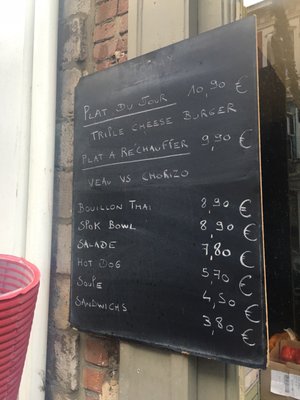 PLAT DU JOUR 10,90 €
TRIPLE CHEESE BURGER
PLAT A RECHAUFFER 9,90 €
VEAU VS CHORIZO
BOUILLON THAI 8,90 €
SPOK BOWL 8,90 €
SALADE 7,80 €
HOT DOG 5,70 €
SOUPE 4,50 €
SANDWICHS 3,80 €